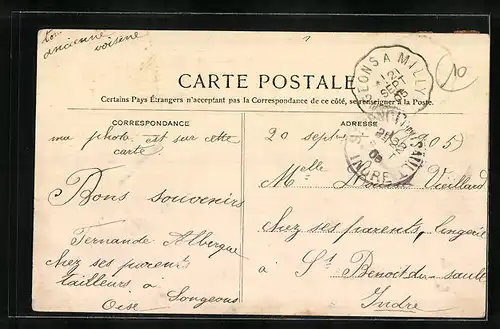 ton
ancienne
voisine
10
GEONS A MILLY
CARTE POSTALE
Certains Pays Étrangers n'acceptant pas la Correspondance de ce côté, se renseigner à la Poste.
CORRESPONDANCE
ADRESSE
ma photo est sur cette
carte.
Bons souvenirs
Fernande Albergue
chez ses parents
tailleurs à
Songeons
Oise
20 sept 1905
INDRE
Melle Vieillard
chez ses parents, lingerie
à St Benoit du sault
Indre